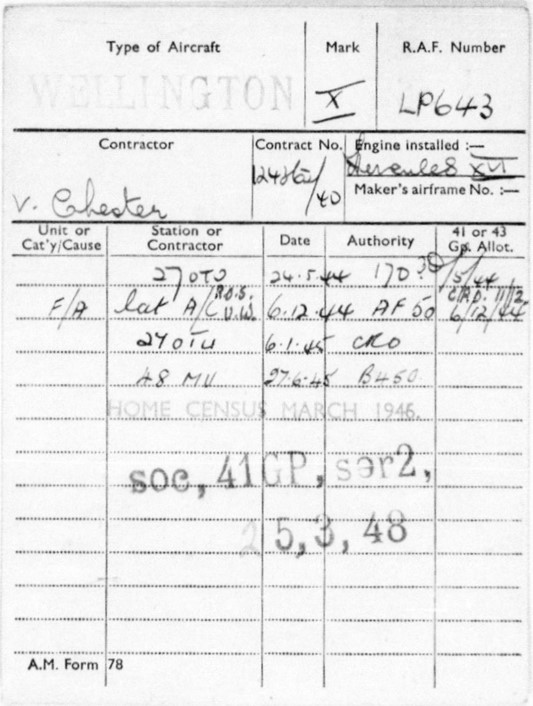 Type of Aircraft Mark R.A.F. Number
WELLINGTON X LP643
Contractor Contract No. Engine installed :—
Hercules XVI
V. Chester /40 Maker's airframe No. :—
Unit or Cat'y/Cause Station or Contractor Date Authority 41 or 43 Gp. Allot.
27 OTU 24.5.44 170 /5/44
F/A Cat A/C R.O.S. V.W. 6.12.44 AF 50 6/12/44
27 OTU 6.1.45 CRO
48 MU 27.6.45 B450
HOME CENSUS MARCH 1946.
soc, 41GP, ser2,
25,3,48
A.M. Form 78